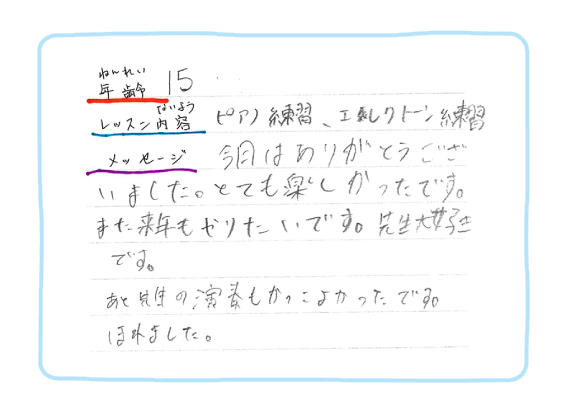 ねんれい
年齢 15
ないよう
レッスン内容 ピアノ練習、エレクトーン練習
メッセージ 今日はありがとうござ
いました。とても楽しかったです。
また来年もやりたいです。先生大好き
です。
あと先生の演奏もかっこよかったです。
ほれました。